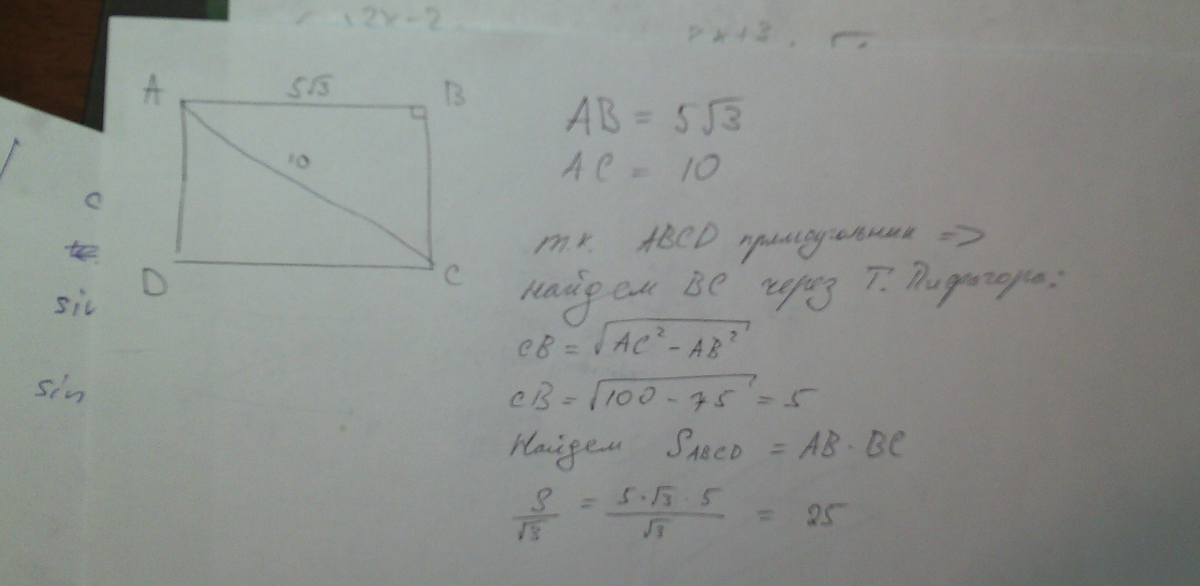 2x-2
A 5√3 B
10
D C
AB = 5√3
AC = 10
т.к. ABCD прямоугольник =>
найдем BC через Т. Пифагора:
CB = √AC² - AB²
CB = √100 - 75 = 5
Найдем S ABCD = AB · BC
S/√3 = 5·√3·5/√3 = 25
c
sin
sin